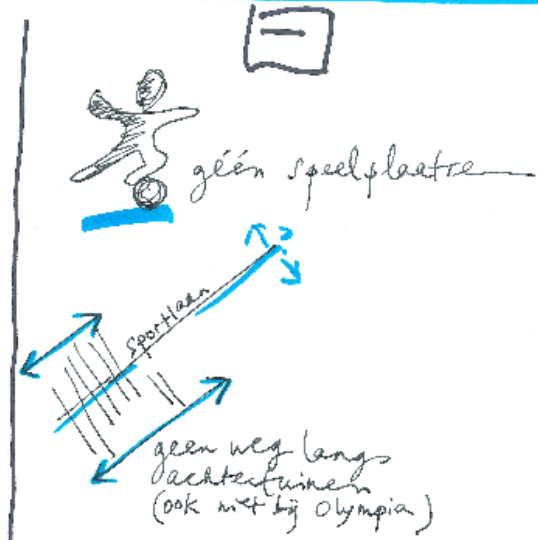 géén speelplaatsen
?
Sportlaan
geen weg langs
achtertuinen
(ook niet bij Olympia)